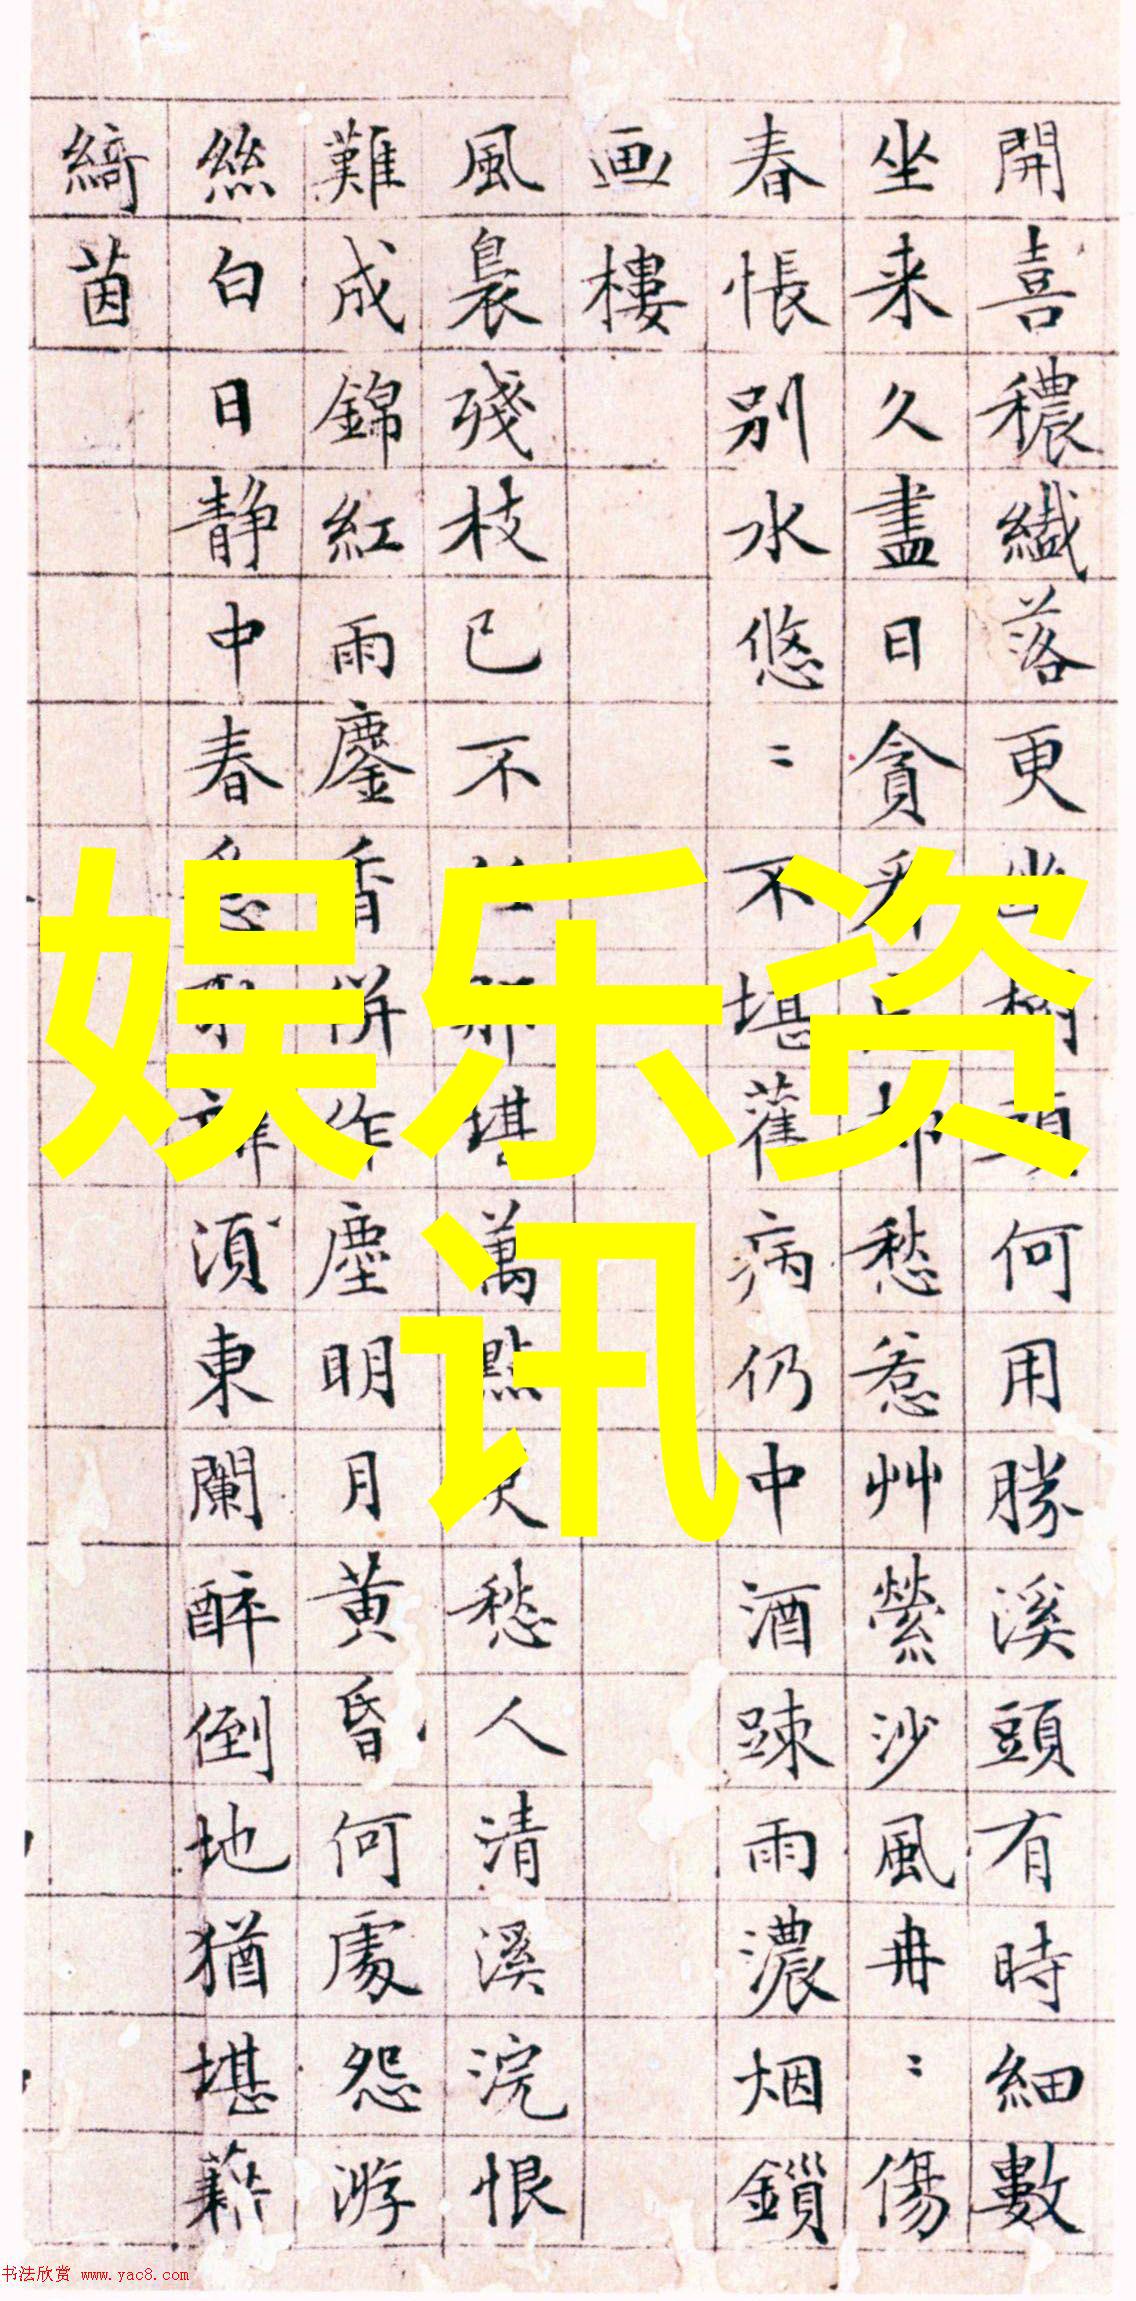 開喜穠纖落更
何用勝溪頭有時細數
坐来久盡日貪
愁惹艸縈沙風冉〻傷
春悵别水悠〻不堪舊病仍中酒踈雨濃烟鎖
画樓
風裊殘枝已不
堪萬點
愁人清溪浣恨
難成錦紅雨鏖香併作塵明月黄昏何處怨游
絲白日静中春
須東闌醉倒地猶堪藉
綺茵
娱乐资
讯
书法欣赏 www.yac8.com